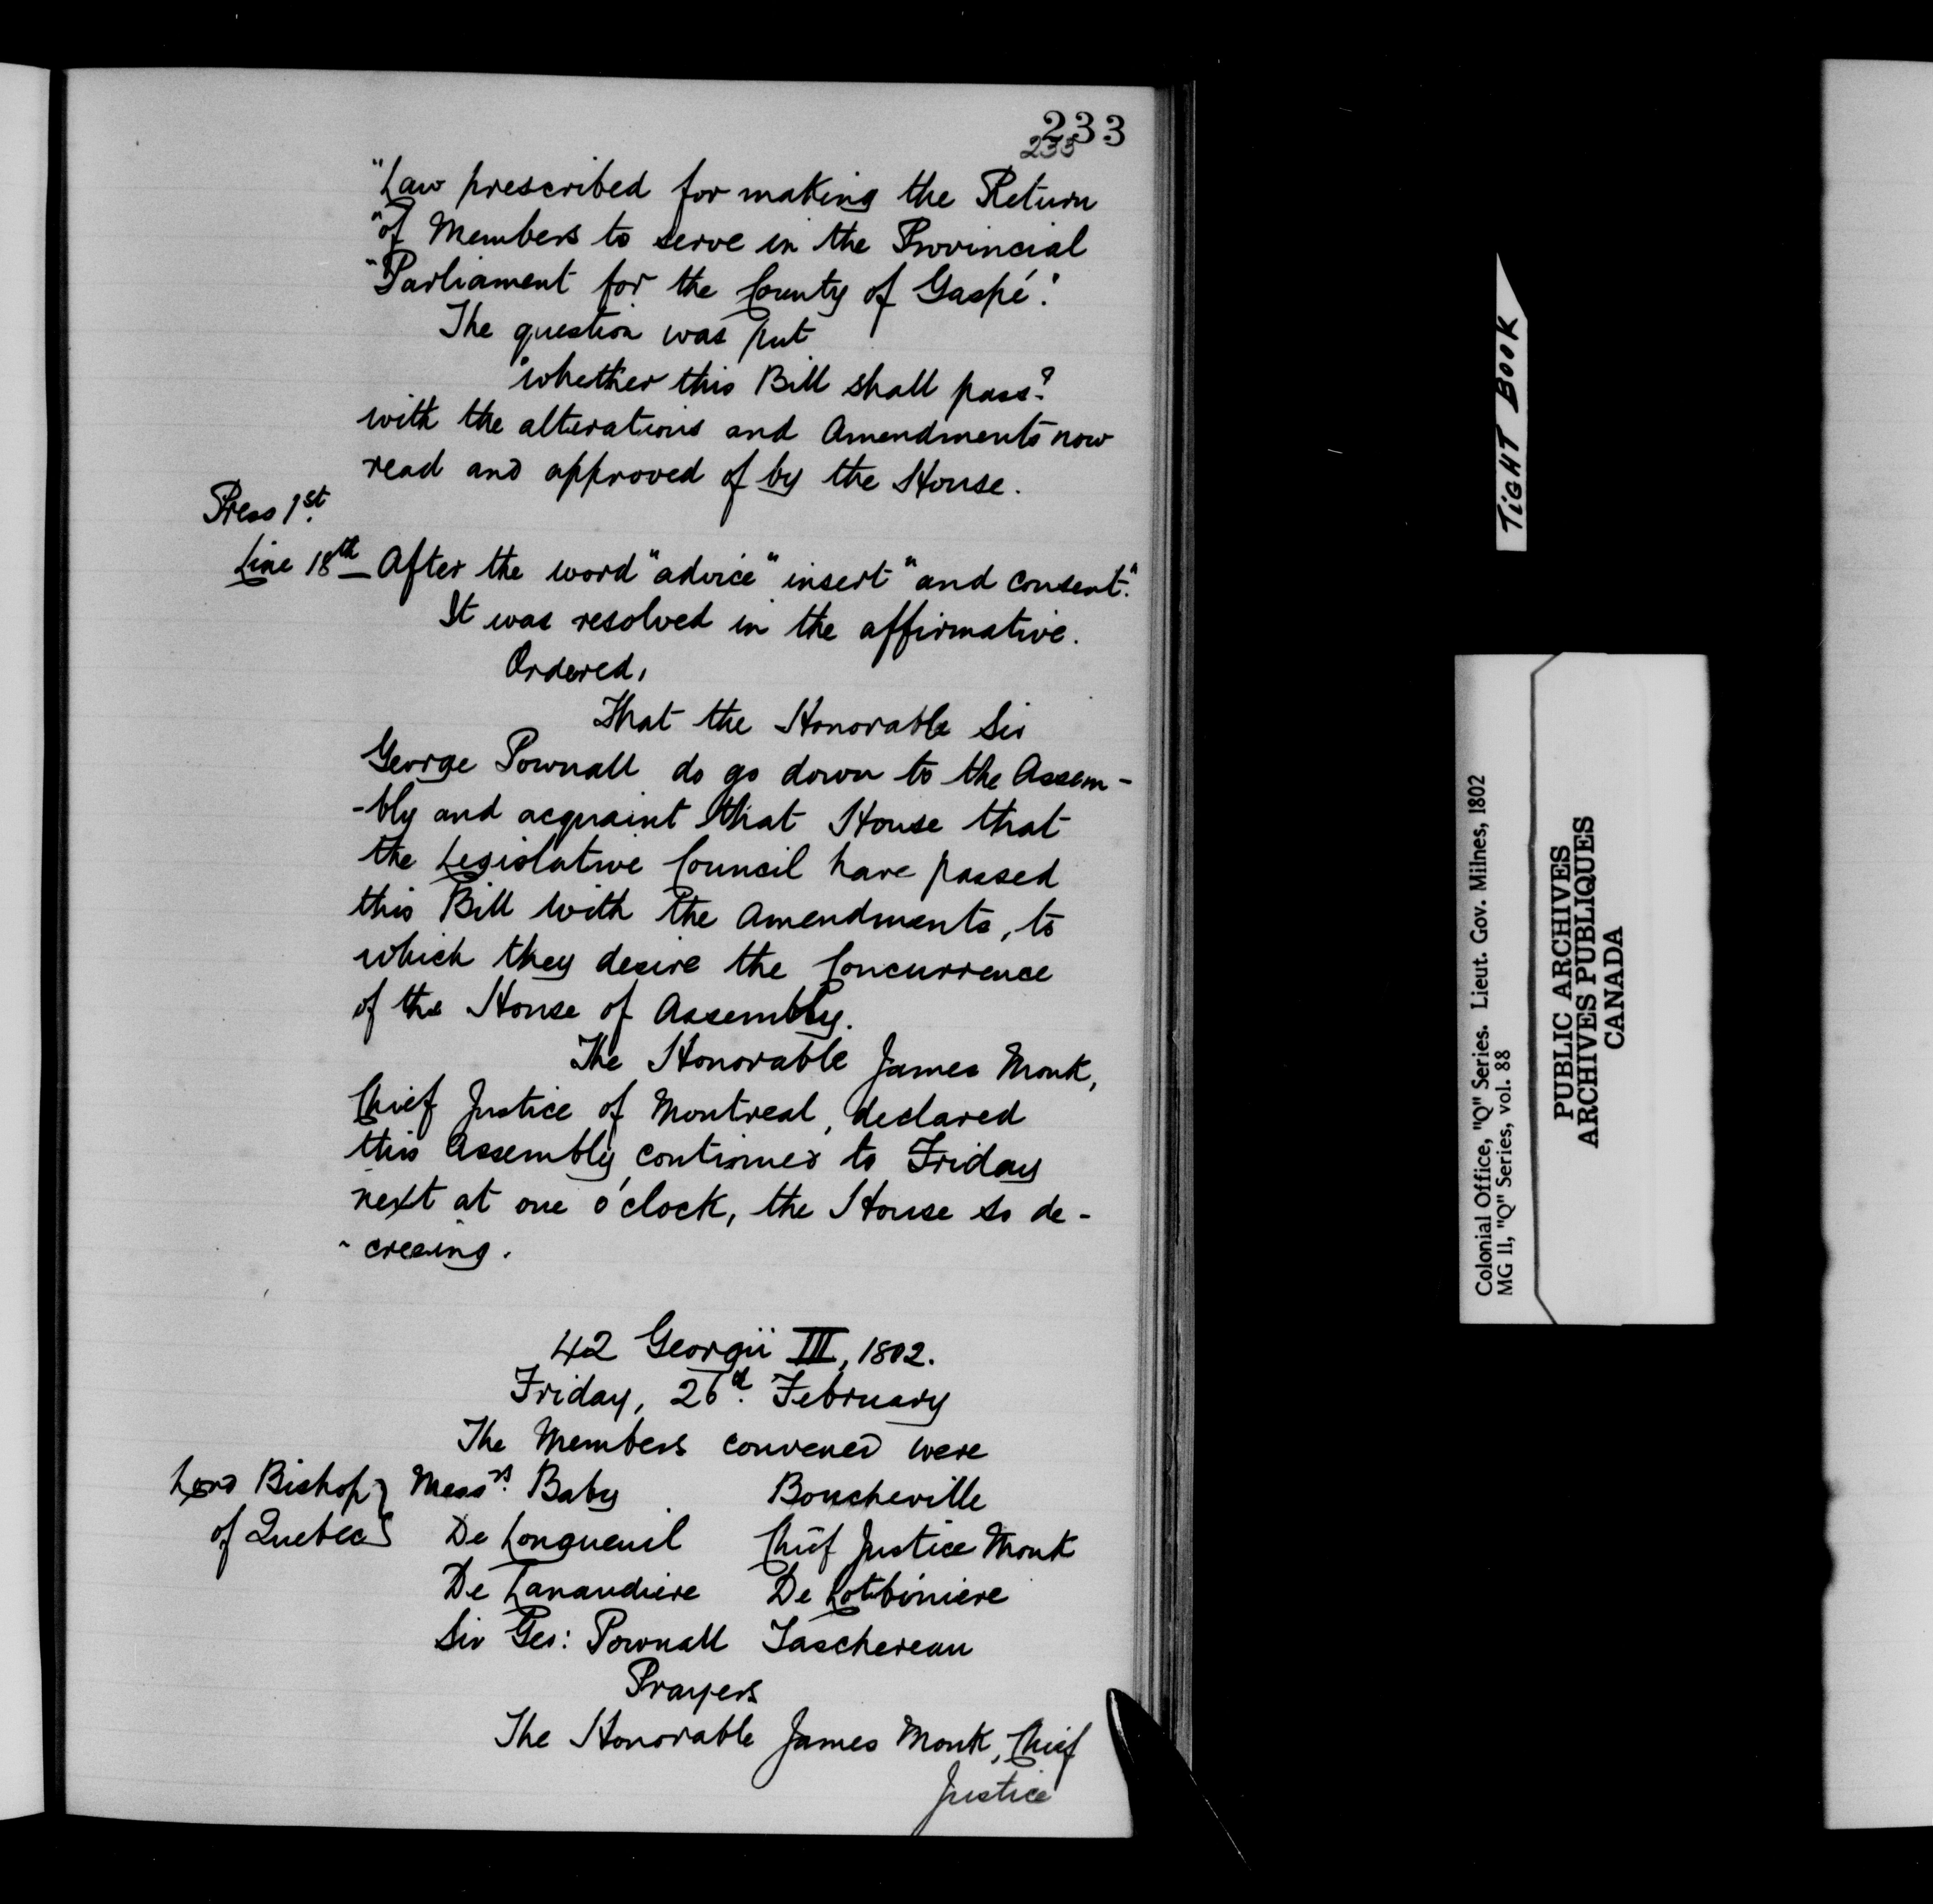 233
235
"Law prescribed for making the Return
"of Members to serve in the Provincial
"Parliament for the County of Gaspé."
The question was put
"whether this Bill shall pass?
with the alterations and Amendments now
read and approved of by the House.
Press 1st.
Line 18th — After the word "advice" insert "and consent."
It was resolved in the affirmative.
Ordered,
That the Honorable Sir
George Pownall do go down to the Assem-
-bly and acquaint that House that
the Legislative Council have passed
this Bill with the Amendments, to
which they desire the Concurrence
of the House of Assembly.
The Honorable James Monk,
Chief Justice of Montreal, declared
this Assembly continued to Friday
next at one o'clock, the House so de-
-creeing.
42 Georgii III, 1802.
Friday, 26th. February
The Members convened were
Lord Bishop } Messrs. Baby Boucheville
of Quebec } De Longueuil Chief Justice Monk
De Lanaudiere De Lotbiniere
Sir Geo: Pownall Taschereau
Prayers
The Honorable James Monk, Chief
Justice
TIGHT BOOK
Colonial Office, "Q" Series. Lieut. Gov. Milnes, 1802
MG 11, "Q" Series, vol. 88
PUBLIC ARCHIVES
ARCHIVES PUBLIQUES
CANADA